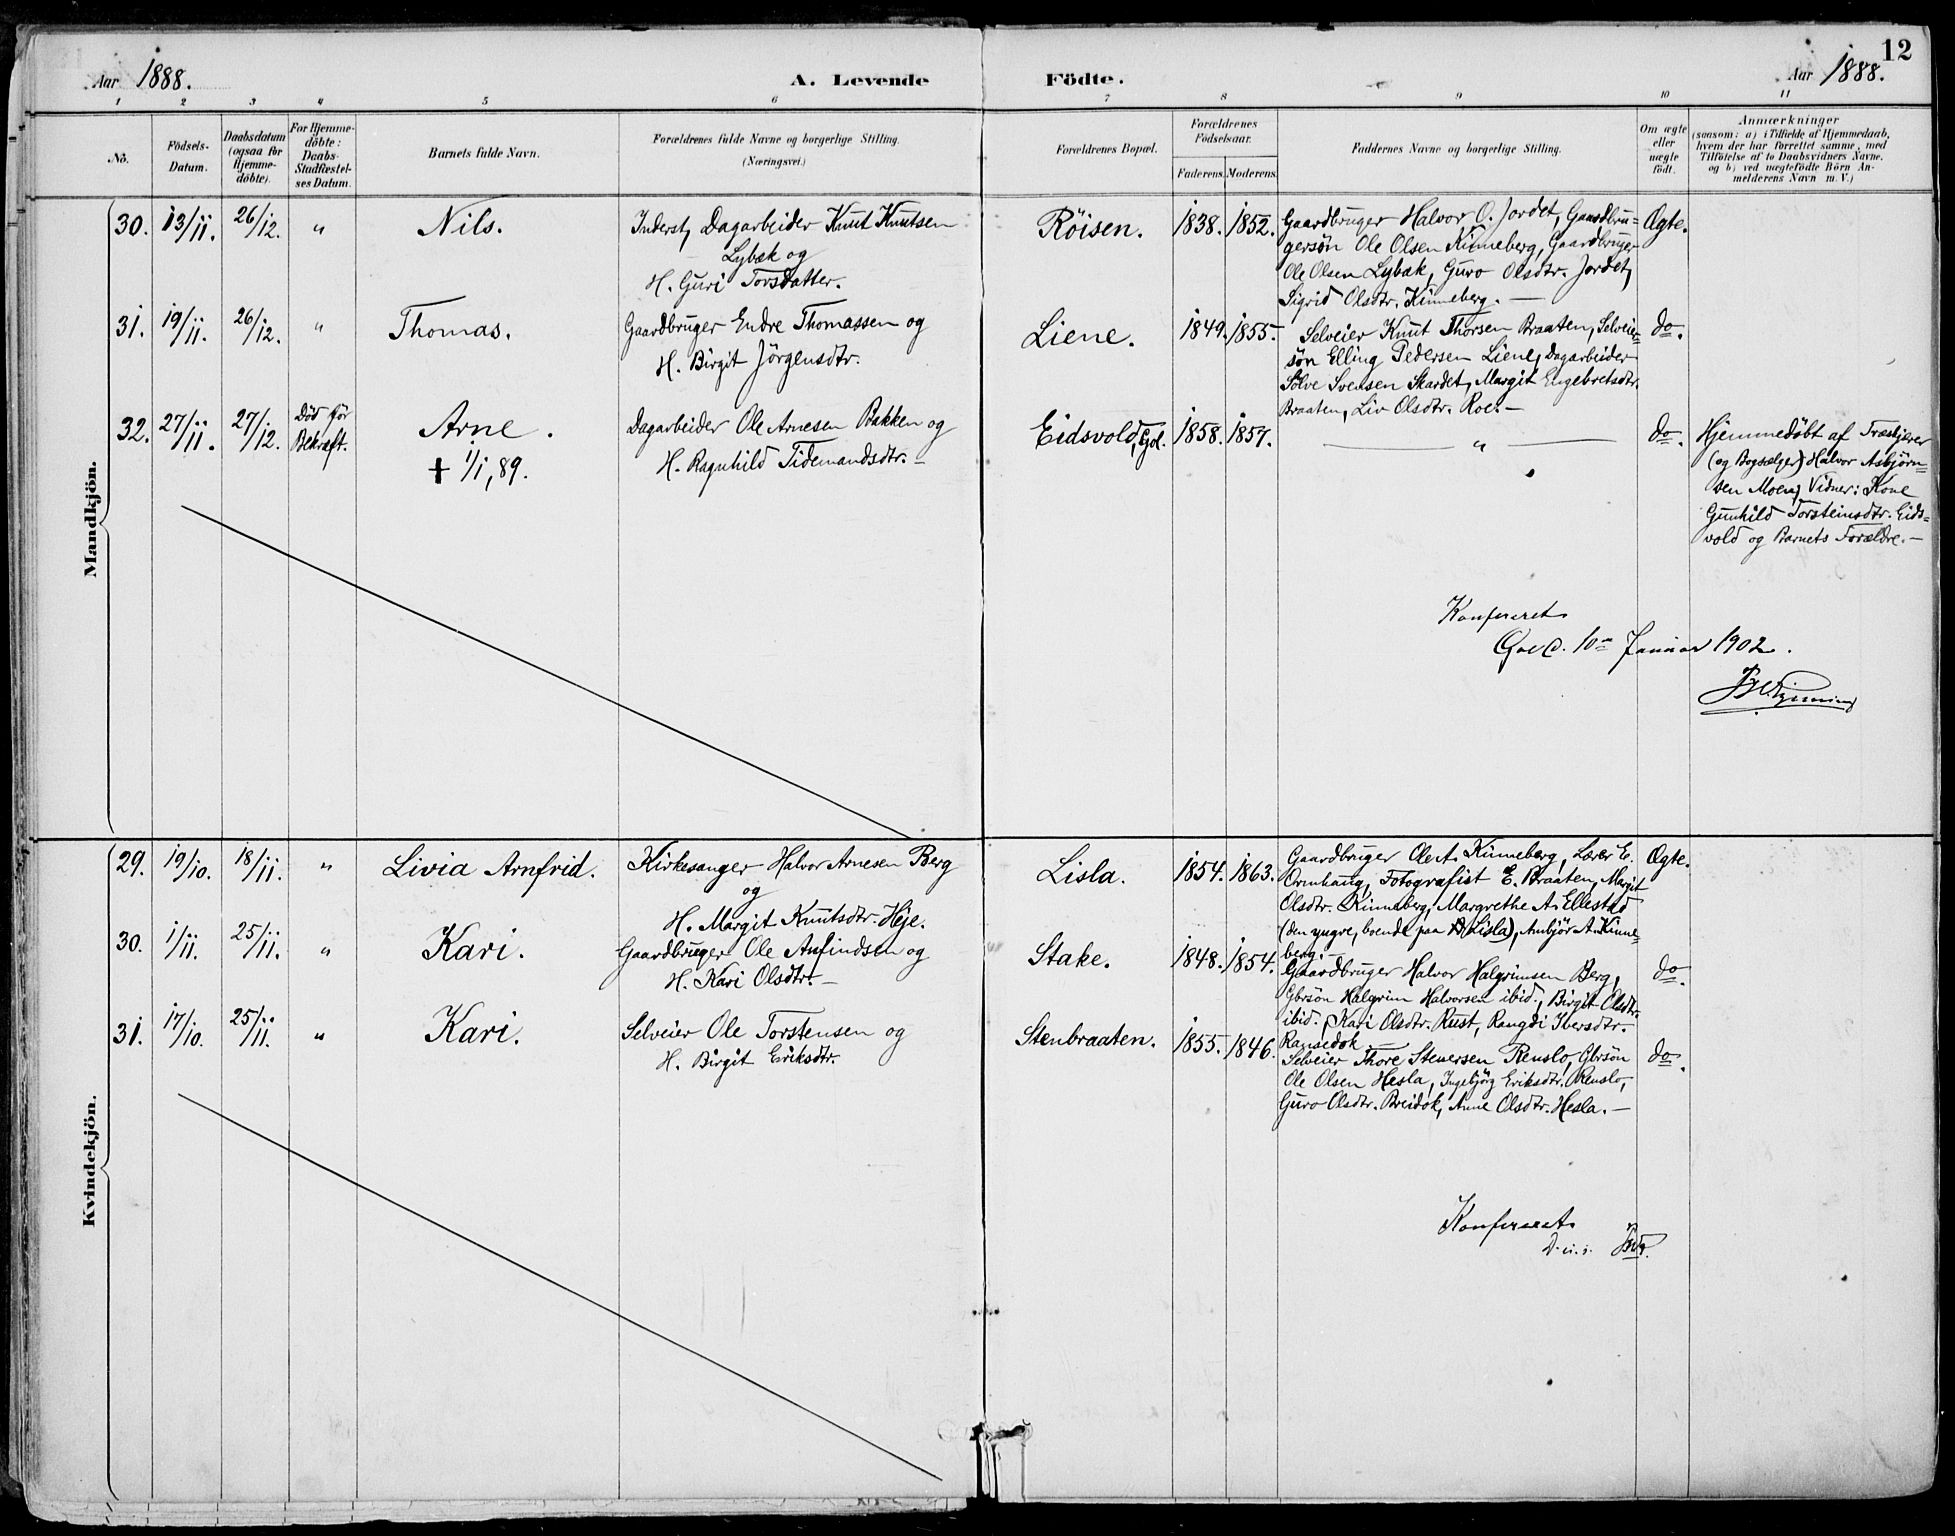 12
Aar 1888.
A. Levende Födte.
Aar 1888.
1 2 3 4 5 6 7 8 9 10 11
No.
Födsels-Datum.
Daabsdatum (ogsaa for Hjemme-döbte).
For Hjemme-döbte: Daabs-Stadfæstel-ses Datum.
Barnets fulde Navn.
Forældrenes fulde Navne og borgerlige Stilling.
(Næringsvei.)
Forældrenes Bopæl.
Forældrenes Födselsaar.
Faderens. Moderens.
Faddernes Navne og borgerlige Stilling.
Om ægte eller uægte födt.
Anmærkninger
(saasom: a) i Tilfælde af Hjemmedaab,
hvem der har forrettet samme, med
Tilföielse af to Daabsvidners Navne.
og b) ved uægtefödte Börn An-
melderens Navn m. V.)
Mandkjön.
30. 13/11. 26/12. " Nils.
Inderst, Dagarbeider Knut Knutsen
Lybæk og
H. Guri Torsdatter.
Röisen. 1838. 1852.
Gaardbruger Halvor O. Jordet, Gaardbru=
gersön Ole Olsen Kinneberg, Gaardbruger
Ole Olsen Lybæk, Guro Olsdtr. Jordet,
Sigrid Olsdtr. Kinneberg. —
Ægte.
31. 19/11. 26/12. " Thomas.
Gaardbruger Endre Thomassen og
H. Birgit Jörgensdtr.
Liene. 1849. 1855.
Selveier Knut Thorsen Braaten, Selveier-
sön Elling Pedersen Liene, Dagarbeider
Sölve Svensen Skardet, Margit Engebretsdtr.
Braaten, Liv Olsdtr. Roe. —
do.
32. 27/11. 27/12. Död för Bekræft. Arne.
+ 1/1, 89.
Dagarbeider Ole Arnesen Bakken og
H. Ragnhild Tidemandsdtr. —
Eidsvold, Gol. 1858. 1857. — " — do.
Hjemmedöbt af Træskjærer
(og Bogsælger) Halvor Asbjörn=
sen Moen, Vidner: Kone
Gunhild Torsteinsdtr. Eids=
vold og Barnets Forældre. —
Konfereret
10de Januar 1902.
Kvindekjön.
29. 19/10. 18/11. " Livia Arnfrid.
Kirkesanger Halvor Arnesen Berg
og
H. Margit Knutsdtr. Heje.
Lisla. 1854. 1863.
Gaardbruger Ole A. Kinneberg, Lærer E.
Ormhaug, Fotografist E. Braaten, Margit
Olsdtr. Kinneberg, Margrethe A. Ellestad
(den yngre, boende paa Lisla), Anbjör A. Kinne-
berg. —
Ægte.
30. 1/11. 25/11. " Kari.
Gaardbruger Ole Anfindsen og
H. Kari Olsdtr. —
Stake. 1848. 1854.
Gaardbruger Halvor Halgrimsen Berg,
Gbrsön Halgrim Halvorsen ibid., Birgit Olsdtr.
ibid., Kari Olsdtr. Rust, Rangdi Iversdtr.
Ramsedok —
do.
31. 17/10. 25/11. " Kari.
Selveier Ole Torstensen og
H. Birgit Eriksdtr.
Stenbraaten. 1855. 1846.
Selveier Thore Stenersen Renslo, Gbrsön
Ole Olsen Hesla, Ingebjörg Eriksdtr. Renslo,
Guro Olsdtr. Breidok, Anne Olsdtr. Hesla. —
do.
Konfereret